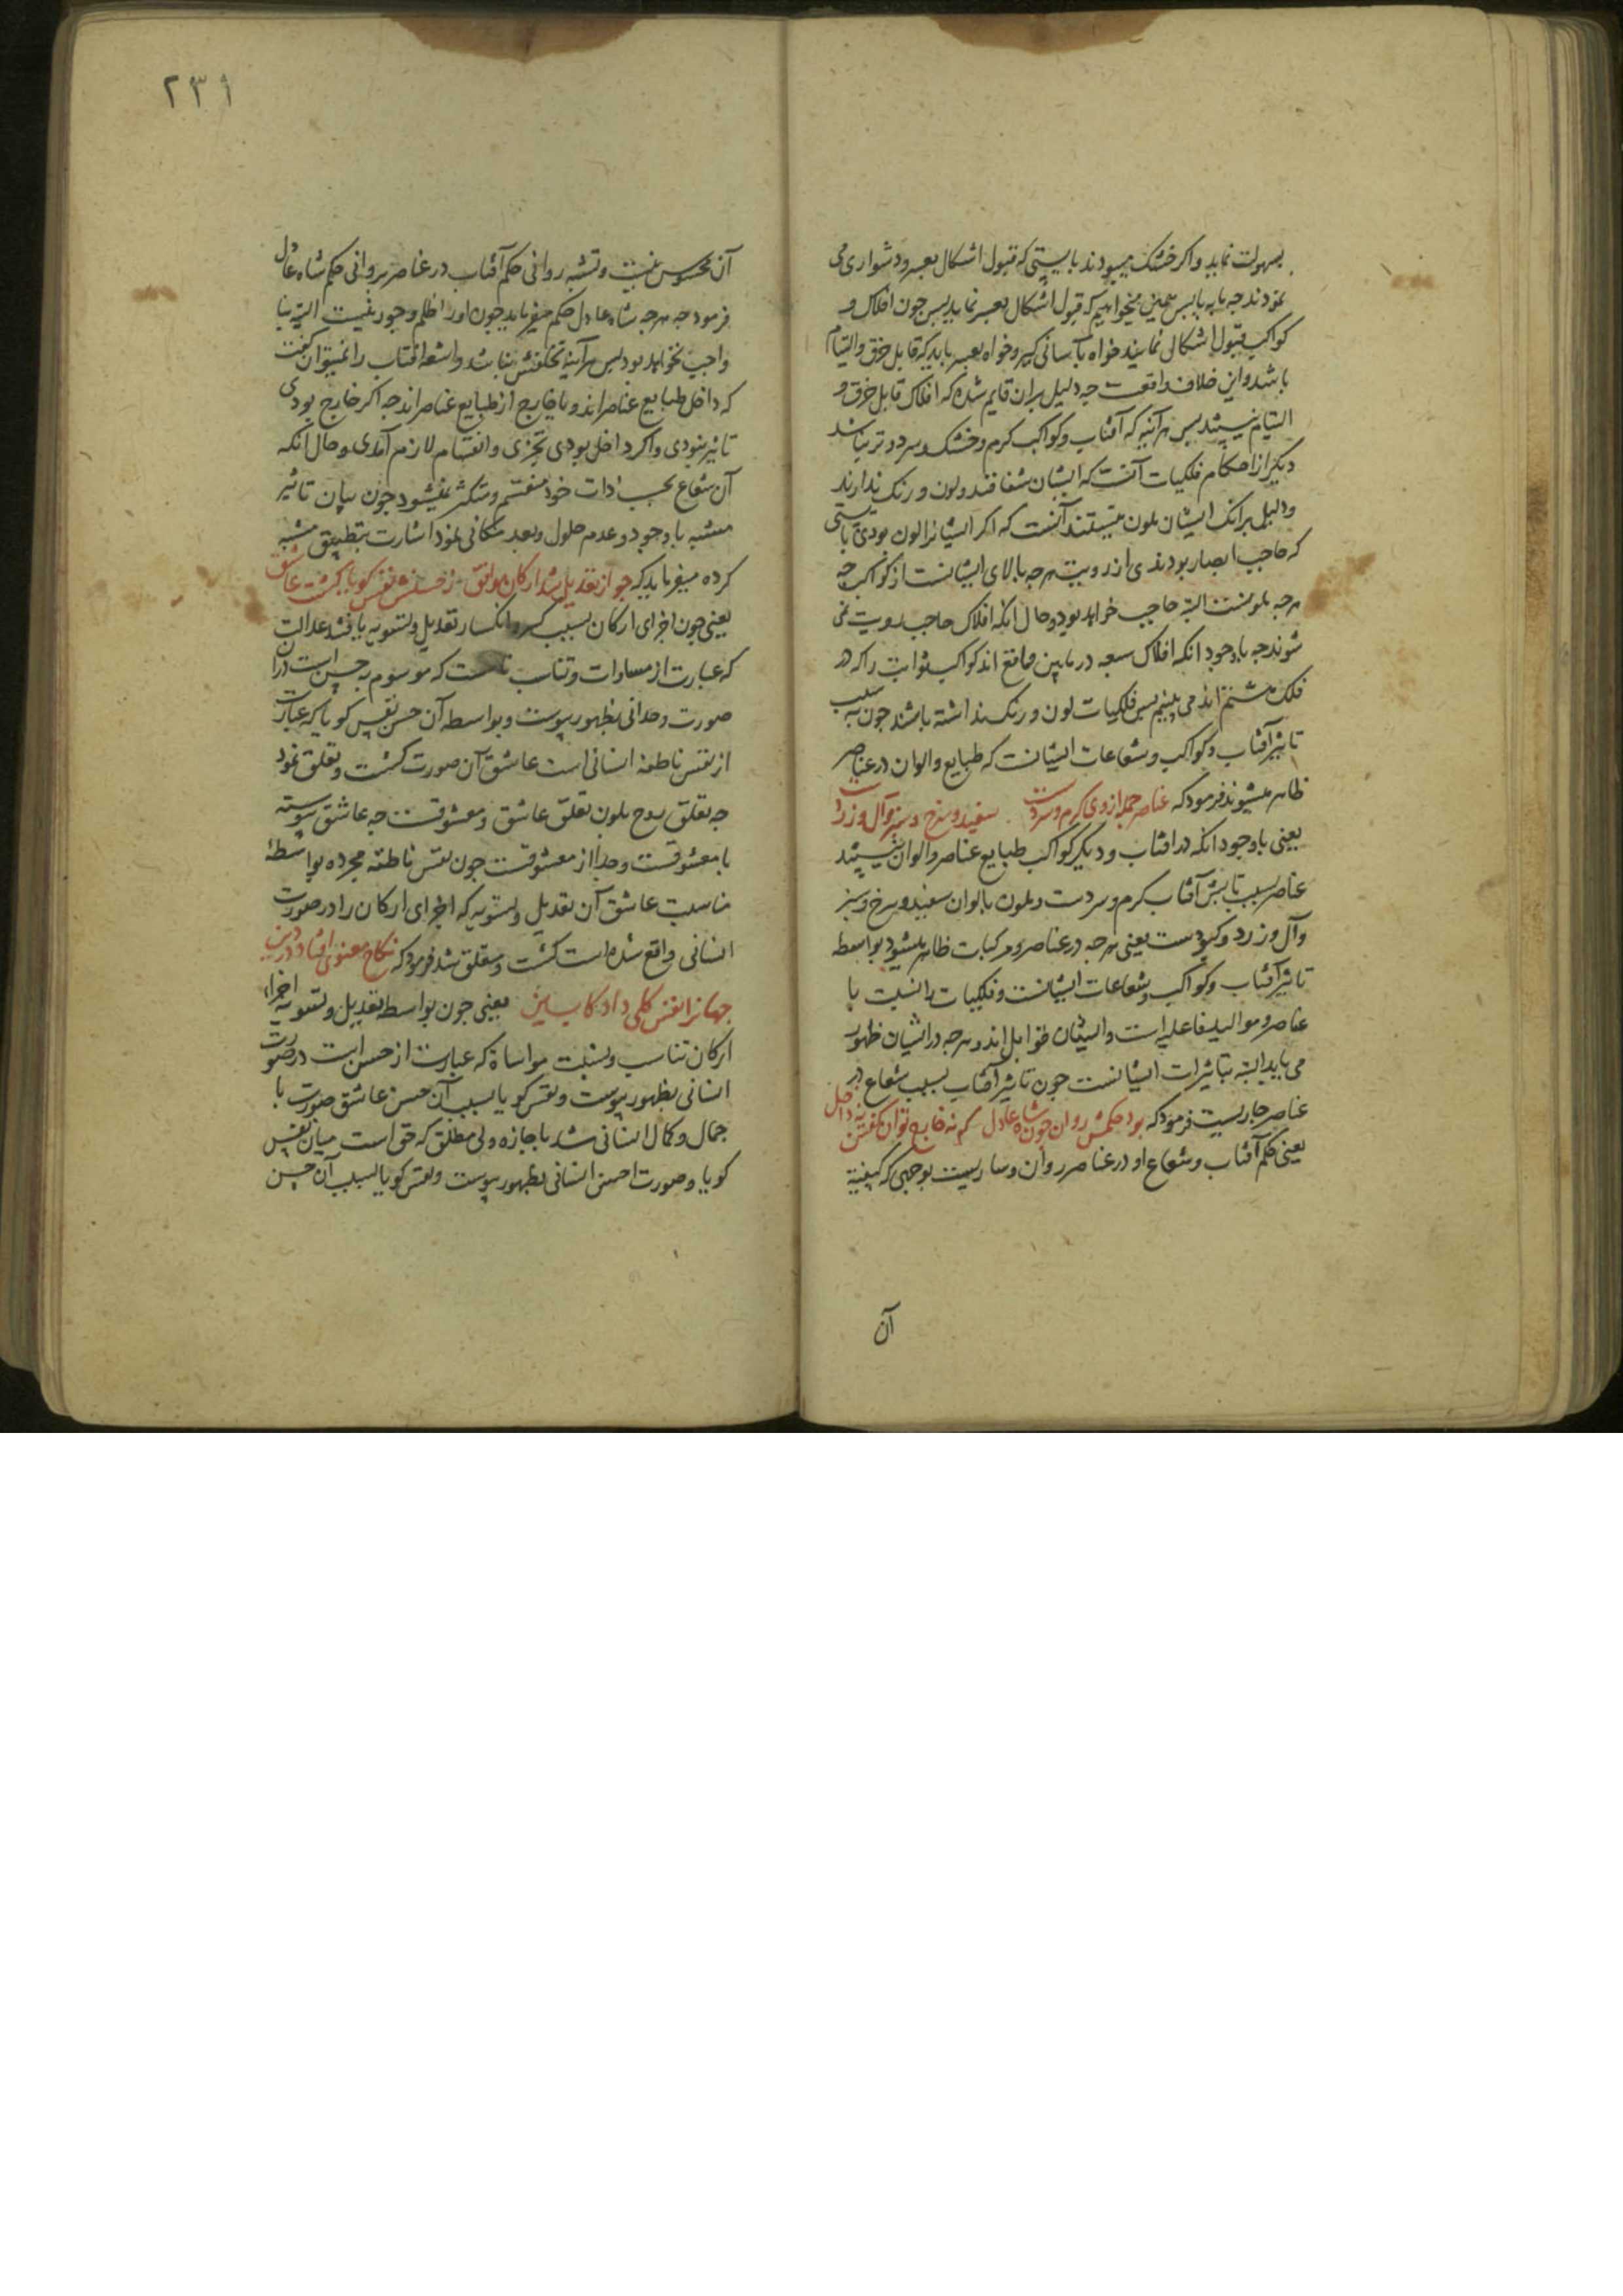 بسهولت نماید و اکر خشک میبودند بایستی که قبول اشکال بعسر و دشواری می
نمودند چه یابس همین میخواهیم که قبول اشکال بعسر نماید پس چون افلاک و
کواکب قبول اشکال نمایند خواه بآسانی کیر و خواه بعسر باید که قابل خرق و التیام
باشد و این خلاف واقعست چه دلیل بران قایم شده که افلاک قابل خرق و
التیام نیستند پس هرآینه که آفتاب و کواکب کرم و خشک و سرد و تر نباشد
دیکر از احکام فلکیات آنست که ایشان شفافند و لون و رنک ندارند
و دلیل برآنک ایشان ملون نیستند آنست که اکر ایشانرا لون بودی بایستی
که حاجب ابصار بودندی از رویت هرچه بالای ایشانست از کواکب چه
هرچه ملونست البته حاجب خواهد بود و حال انکه افلاک حاجب رویت نمی
شوند چه باوجود انکه افلاک سبعه در مابین واقع اند کواکب ثوابت را که در
فلک هشتم اند می بینیم پس فلکیات لون و رنک نداشته باشند چون بسبب
تاثیر آفتاب و کواکب و شعاعات ایشانست که طبایع و الوان در عناصر
ظاهر میشوند فرمود که عناصر جمله از وی کرم و سردست سفید و سرخ و سبز و آل و زردست
یعنی باوجود انکه در افتاب و دیکر کواکب طبایع عناصر و الوان نیستند
عناصر بسبب تابش آفتاب کرم و سردست و ملون بالوان سفید و سرخ و سبز
و آل و زرد و کبودست یعنی هرچه در عناصر و مرکبات ظاهر میشود بواسطه
تاثیر آفتاب و کواکب و شعاعات ایشانست و فلکیات را نسبت با
عناصر و موالید فاعلیه است و ایشان قوابل اند و هرچه در ایشان ظهور
می یابد البته بتاثیرات ایشانست چون تاثیر آفتاب بسبب شعاع در
عناصر جاریست فرمود که بود حکمش روان چون شاه عادل که نه خارج توان کفتن نه داخل
یعنی حکم آفتاب و شعاع او در عناصر روان و ساریست بوجهی که کیفیة
آن
٢٣١
آن محسوس نیست و تشبیه روانی حکم آفتاب در عناصر بروانی حکم شاه عادل
فرمود چه هرچه شاه عادل حکم میفرماید چون اورا ظلم و جور نیست البته بنا
واجب نخواهد بود پس هرآینه تخلفش نباشد و اشعه افتاب را نمیتوان کفت
که داخل طبایع عناصراند و یا خارج از طبایع عناصراند چه اکر خارج بودی
تاثیر ننمودی و اکر داخل بودی تجزی و انقسام لازم آمدی و حال آنکه
آن شعاع بحسب ذات خود منقسم و متکثر نمیشود چون بیان تاثیر
مشبه باوجود و عدم حلول و بعد مکانی نمود اشارت بتطبیق مشبه
کرده میفرماید که چو از تعدیل شد ارکان موافق ز حسنش نفس کویا کشت عاشق
یعنی چون اجزای ارکان بسبب کسر و انکسار تعدیل و تسویه یافتند عدالت
که عبارت از مساوات و تناسب است که موسوم به حسن است در ان
صورت وحدانی بظهور پیوست و بواسطه آن حسن نفس کویا که عبارت
از نفس ناطقه انسانی است عاشق آن صورت کشت و تعلق نمود
چه تعلق روح ببدن تعلق عاشق و معشوقست چه عاشق پیوسته
با معشوقست و جدا از معشوقست چون نفس ناطقه مجرده بواسطهٔ
مناسبت عاشق آن تعدیل و تسویه که اجزای ارکان را در صورت
انسانی واقع شده است کشت و متعلق شد فرمود که نکاح معنوی افتاد در دین
جهانرا نفس کلی داد کابین یعنی چون بواسطه تعدیل و تسویه اجزاء
ارکان تناسب و نسبت مواساة که عبارت از حسن است در صورت
انسانی بظهور پیوست و نفس کویا بسبب آن حسن عاشق صورت با
جمال و کمال انسانی شد باجازه ولی مطلق که حق است میان نفس
کویا و صورت احسن انسانی بظهور پیوست و نفس کویا بسبب آن حسن